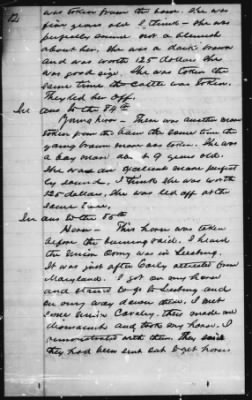 12
was taken from the barn. She was
five years old I think - She was
perfectly sound not a blemish
about her, She was a dark brown
and was worth 125 dollars She
was good size. She was taken the
same time the cattle was taken.
They led her off.
In ans to the 54th
Young horse - There was another mare
taken from the barn the same time the
young brown mare was taken. She was
a bay mare 8 or 9 years old.
She was an excellent mare perfect
ly sound. I think she was worth
125 dollars, She was led off at the
same time,
In ans to the 55th
Horse - This horse was taken
before the burning raid. I heard
the Union Army was in Leesburg.
It was just after Early retreated from
Maryland. I got on my horse
and started to go to Leesburg and
on my way down there, I met
some Union Cavalry. they made me
dismount and took my horse. I
remonstrated with them. They said
they had been sent out to get horses.